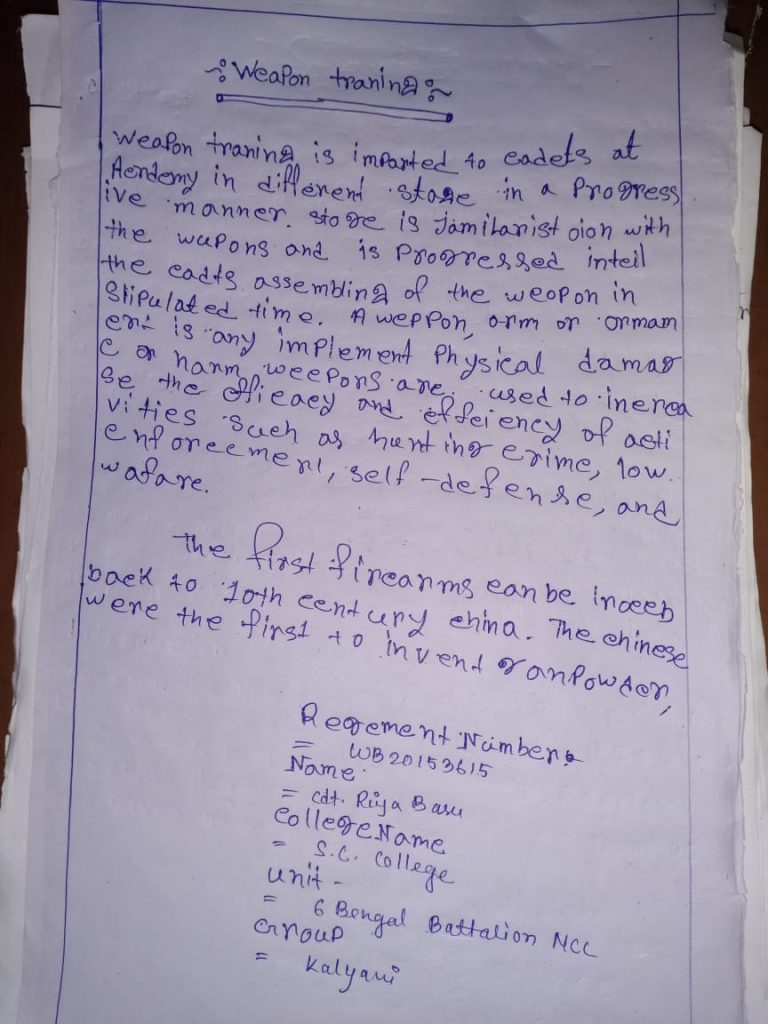 Weapon traning
Weapon traning is imparted to cadets at
Acrdemy in different stage in a Progress
ive manner. stoge is Jamilarist oion with
the wupons and is Progressed inteil
the cadts assembling of the weopon in
Stipulated time. A weppon, orm or ormam
ent is any implement Physical damag
e or harm weepons are used to increa
se the efficacy and effciency of acti
vities such as hunting crime, low
enforcement, self-defense, and
wafare.
The first firearms can be
back to 10th century china. The chinese
were the first to invent ganpowder,
Regement Number
= WB20153615
Name
= cdt. Riya Basu
College Name
= S.C. College
unit -
= 6 Bengal Battalion NCC
Group
= Kalyani